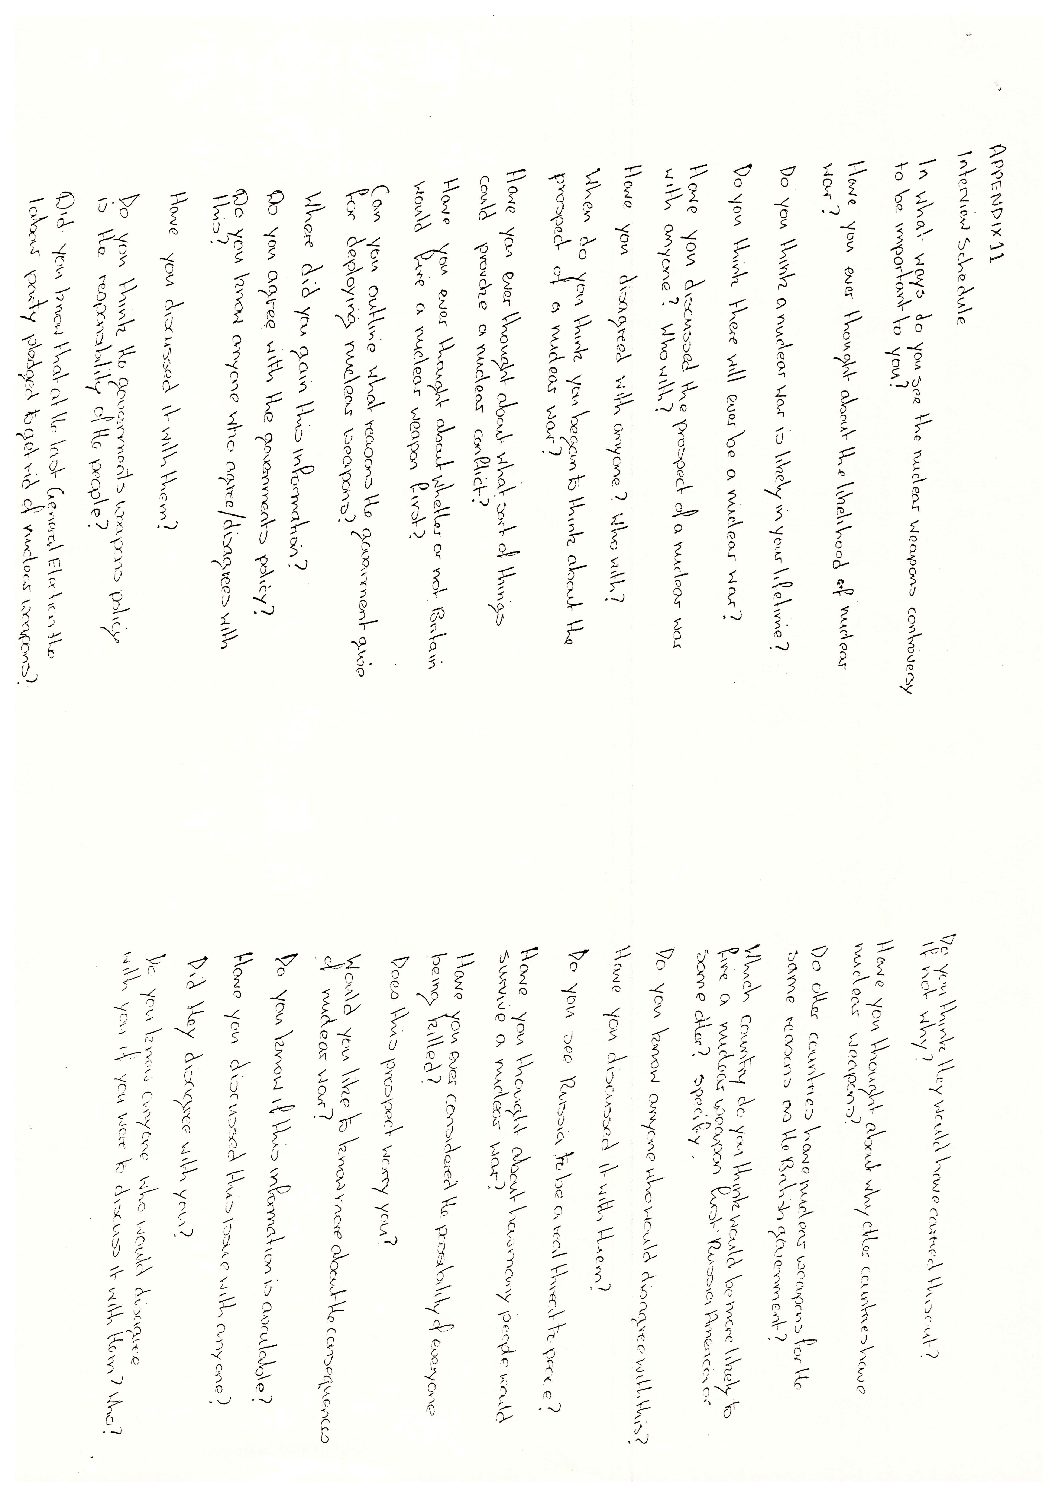 APPENDIX 11
Interview Schedule
In what ways do you see the nuclear weapons controversy
to be important to you?
Have you ever thought about the likelihood of nuclear
war?
Do you think a nuclear war is likely in your lifetime?
Do you think there will ever be a nuclear war?
Have you discussed the prospect of a nuclear war
with anyone? Who with?
Have you disagreed with anyone? Who with?
When do you think you began to think about the
prospect of a nuclear war?
Have you ever thought about what sort of things
could provoke a nuclear conflict?
Have you ever thought about whether or not Britain
would fire a nuclear weapon first?
Can you outline what reasons the government give
for deploying nuclear weapons?
Where did you gain this information?
Do you agree with the governments policy?
Do you know anyone who agree/disagrees with
this?
Have you discussed it with them?
Do you think the governments weapons policy
is the responsibility of the people?
Did you know that at the last General Election the
labour party pledged to get rid of nuclear weapons?
Do you think they would have carried this out?
If not why?
Have you thought about why other countries have
nuclear weapons?
Do other countries have nuclear weapons for the
same reasons as the British government?
Which country do you think would be more likely to
fire a nuclear weapon first: Russia America or
some other? specify.
Do you know anyone who would disagree with this?
Have you discussed it with them?
Do you see Russia to be a real threat to peace?
Have you thought about how many people would
survive a nuclear war?
Have you ever considered the possibility of everyone
being killed?
Does this prospect worry you?
Would you like to know more about the consequences
of nuclear war?
Do you know if this information is available?
Have you discussed this issue with anyone?
Did they disagree with you?
Do you know anyone who would disagree
with you if you were to discuss it with them? Who?